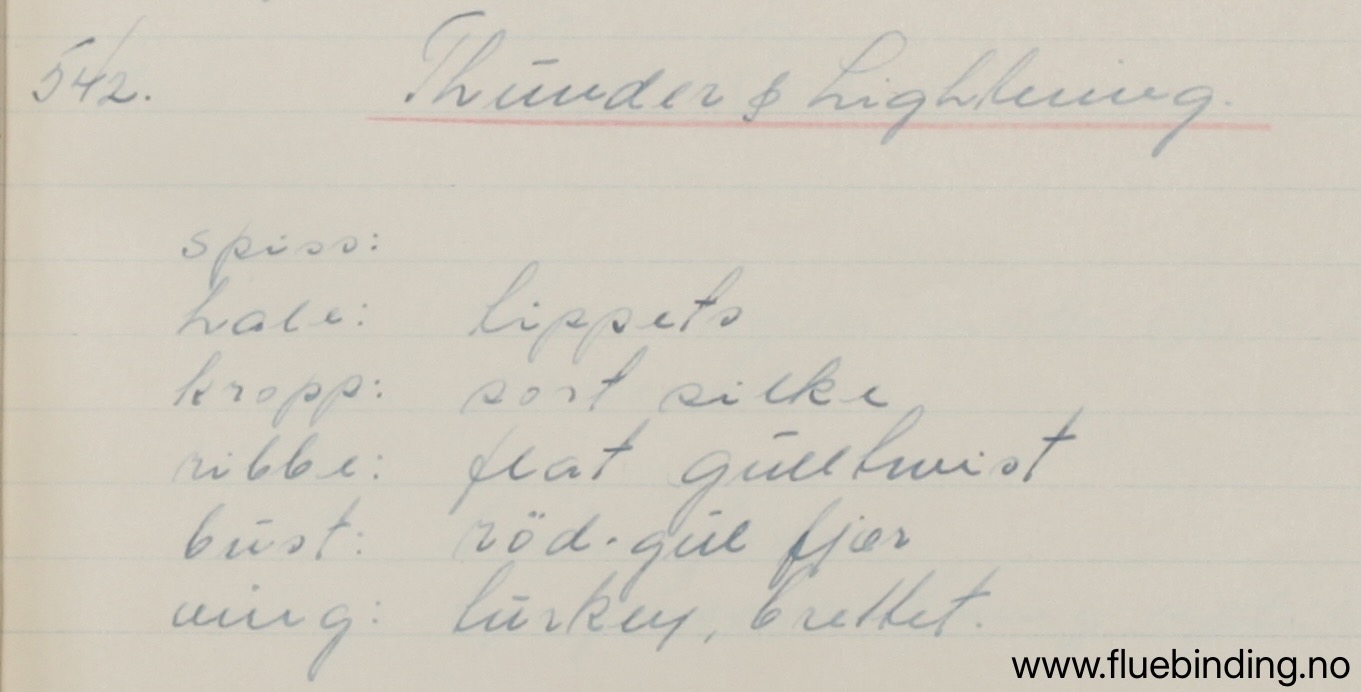 542. Thŭnder & Lightning.
spiss:
hale: tippets
kropp: sort silke
ribbe: flat gŭlltwist
bŭst: röd-gŭl fjær
ving: tŭrkey, brettet.
www.fluebinding.no